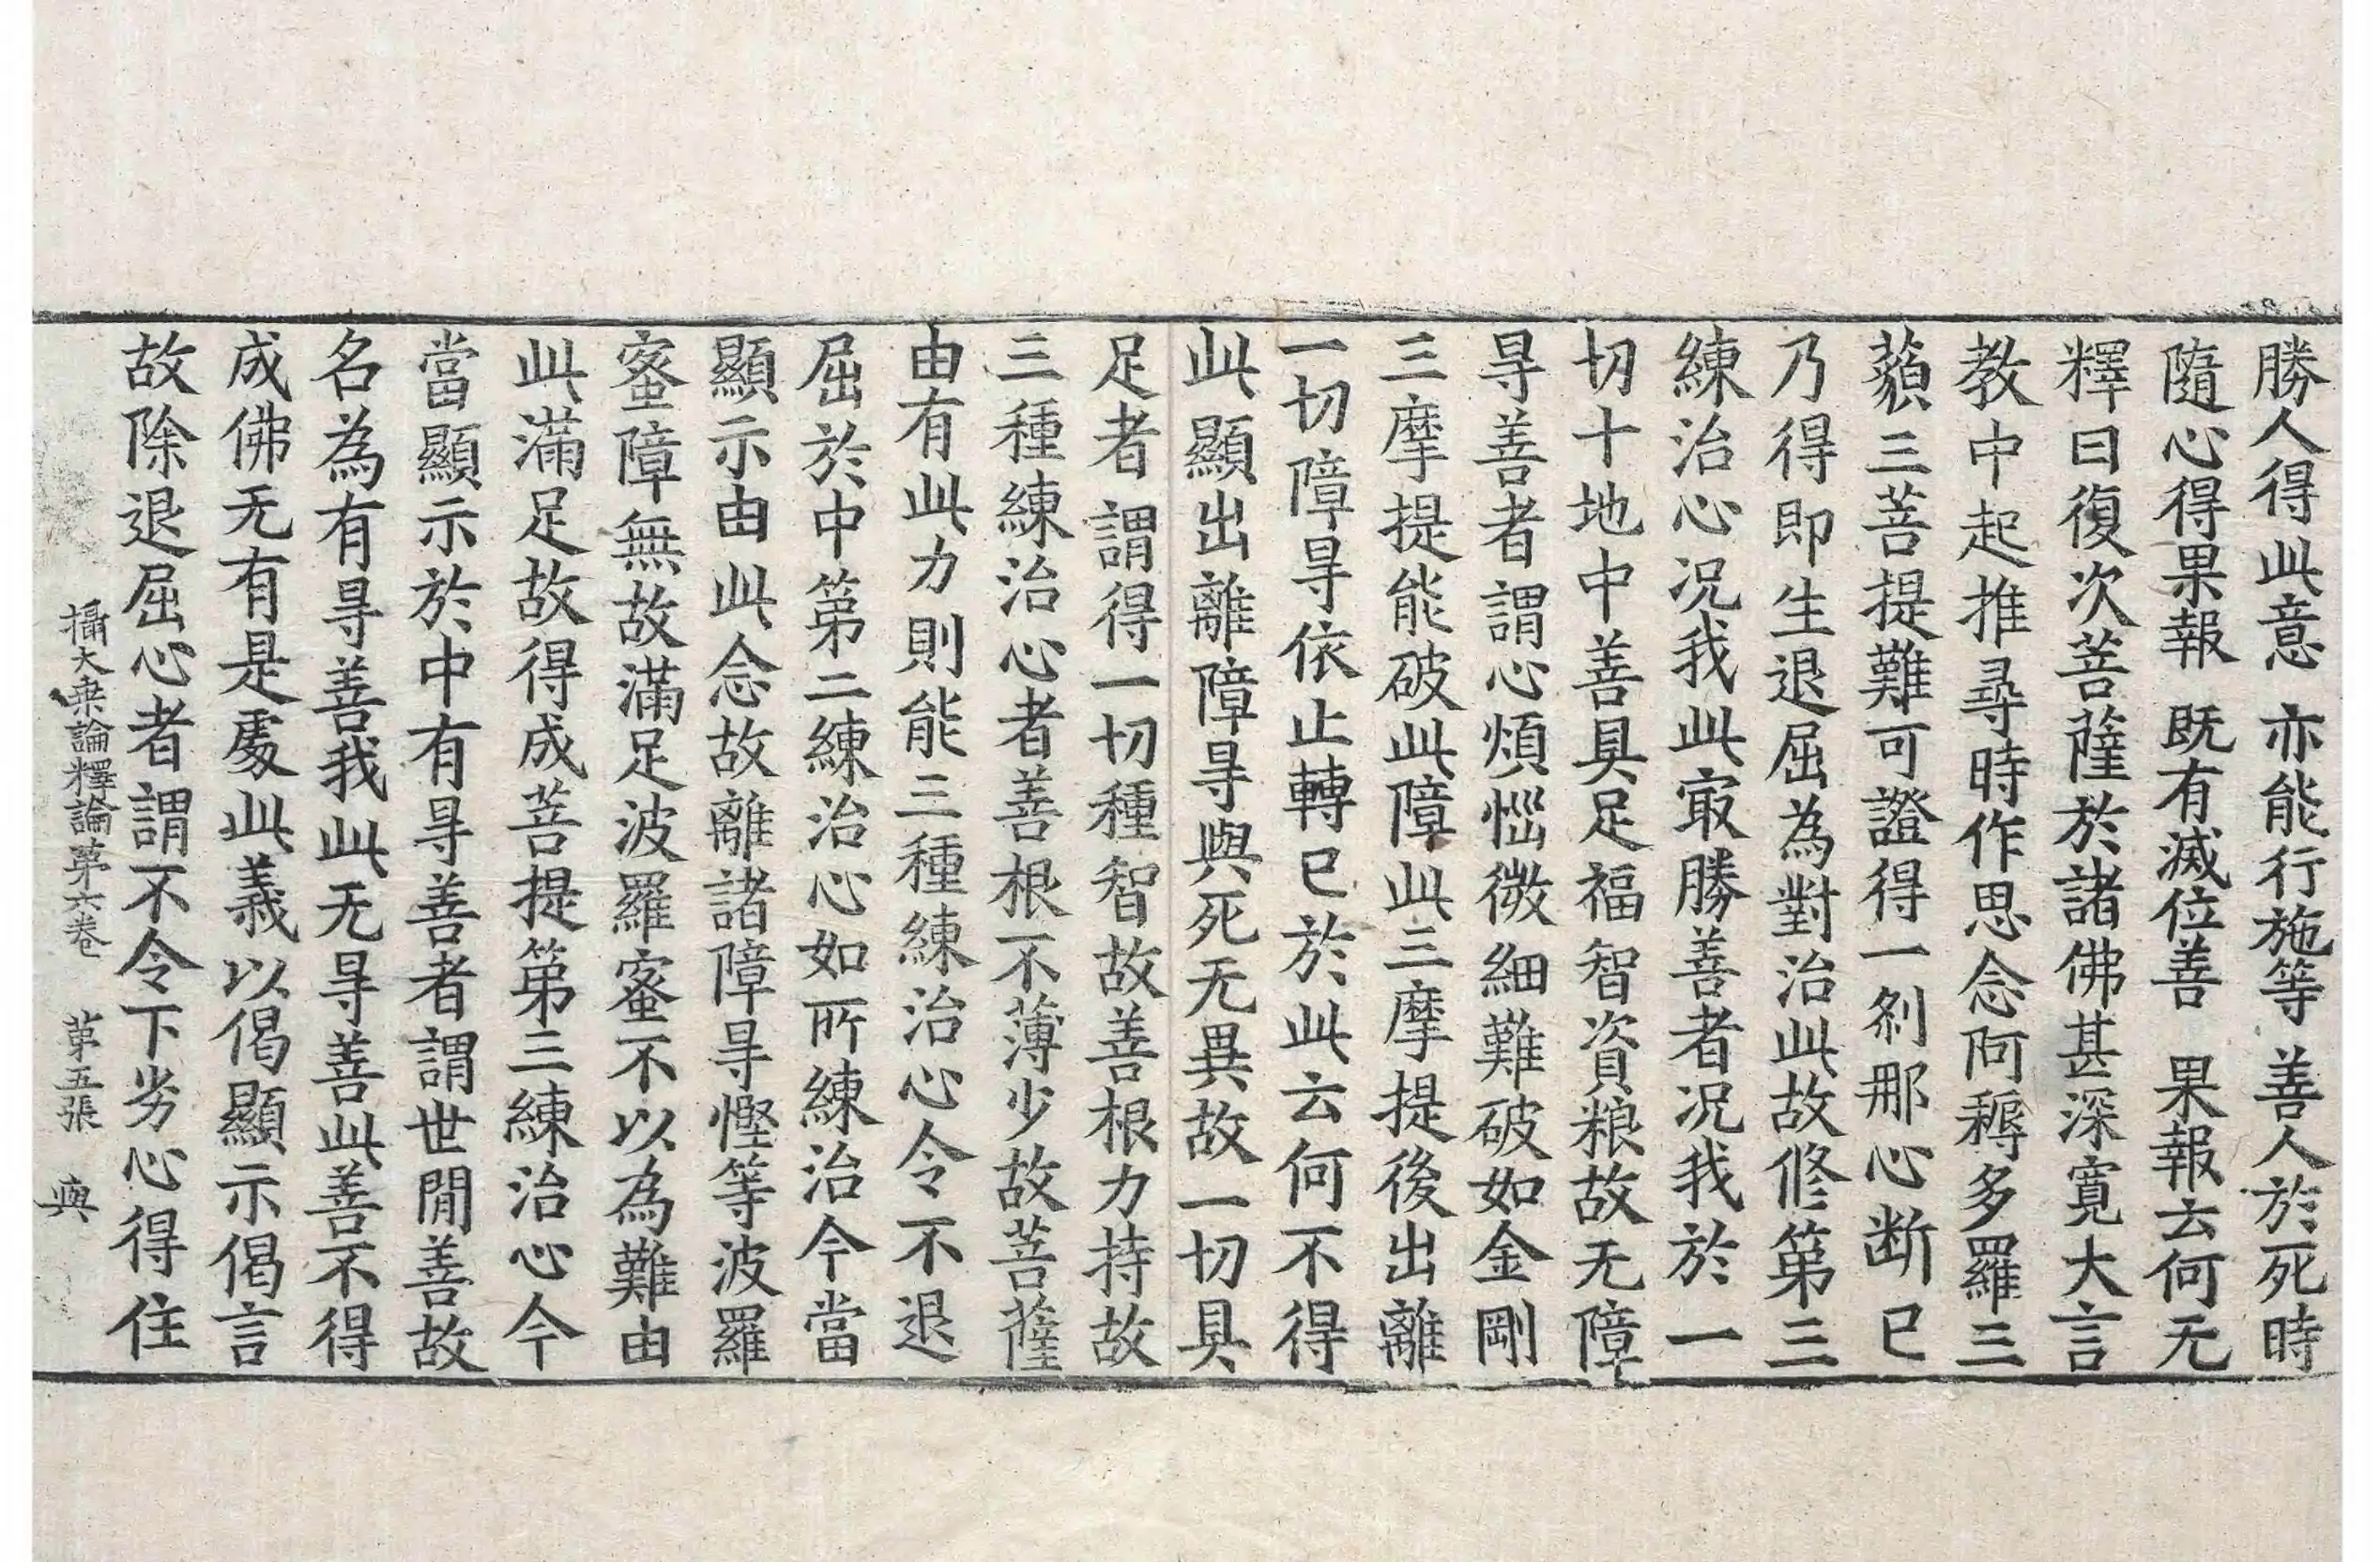 勝人得此意　亦能行施等　善人於死時
隨心得果報　既有滅位善　果報云何无
釋曰復次菩薩於諸佛甚深寬大言
教中起推尋時作思念阿耨多羅三
藐三菩提難可證得一剎那心断已
乃得即生退屈為對治此故修第三
練治心况我此㝡勝善者况我於一
切十地中善具足福智資粮故无障
㝵善者謂心煩惱微細難破如金剛
三摩提能破此障此三摩提後出離
一切障㝵依止轉已於此云何不得
此顯出離障㝵與死无異故一切具
足者謂得一切種智故善根力持故
三種練治心者善根不薄少故菩薩
由有此力則能三種練治心令不退
屈於中第二練治心如所練治今當
顯示由此念故離諸障㝵慳等波羅
蜜障無故滿足波羅蜜不以為難由
此滿足故得成菩提第三練治心今
當顯示於中有㝵善者謂世間善故
名為有㝵善我此无㝵善此善不得
成佛无有是處此義以偈顯示偈言
故除退屈心者謂不令下劣心得住
攝大乗論釋論第六卷　第五張　與